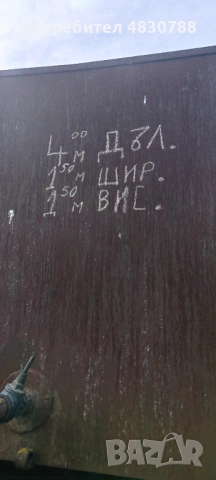 Потребител 4830788
4⁰⁰ м ДЪЛ.
1⁵⁰ м ШИР.
1⁵⁰ м ВИС.
BAZAR.BG